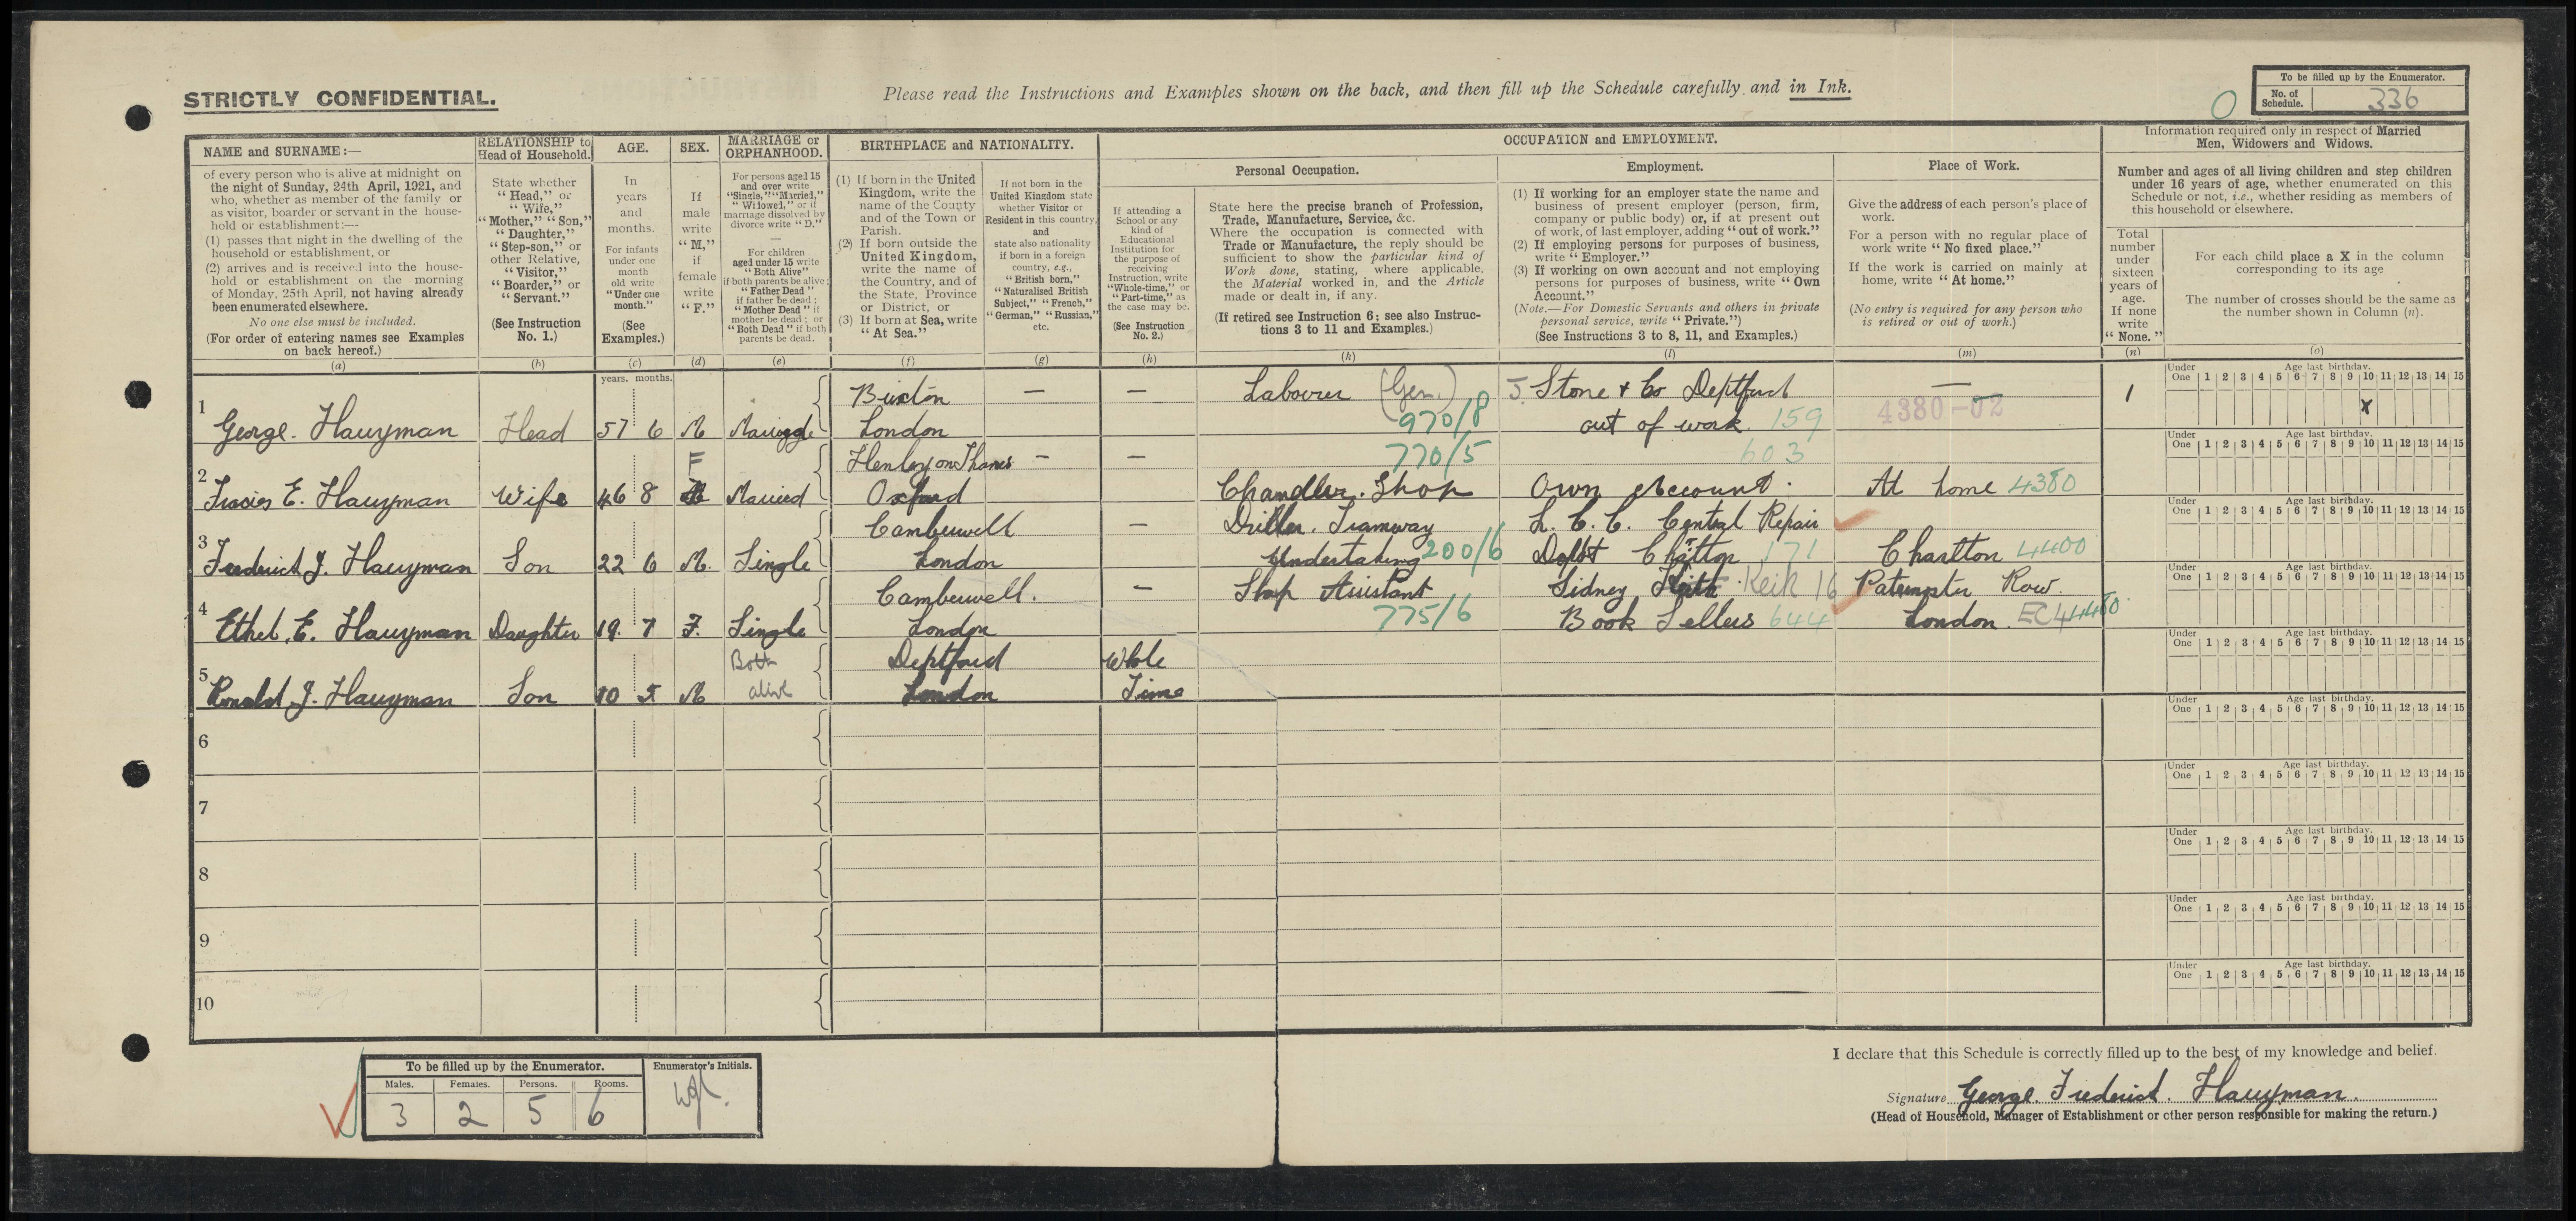 STRICTLY CONFIDENTIAL.
Please read the Instructions and Examples shown on the back, and then fill up the Schedule carefully and in Ink.
To be filled up by the Enumerator.
No. of Schedule. 336
0
NAME and SURNAME:—
of every person who is alive at midnight on
the night of Sunday, 24th April, 1921, and
who, whether as member of the family or
as visitor, boarder or servant in the house-
hold or establishment:—
(1) passes that night in the dwelling of the
household or establishment, or
(2) arrives and is received into the house-
hold or establishment on the morning
of Monday, 25th April, not having already
been enumerated elsewhere.
No one else must be included.
(For order of entering names see Examples
on back hereof.)
(a)
RELATIONSHIP to
Head of Household.
State whether
"Head," or
"Wife,"
"Mother," "Son,"
"Daughter,"
"Step-son," or
other Relative,
"Visitor,"
"Boarder," or
"Servant."
(See Instruction
No. 1.)
(b)
AGE.
In
years
and
months.
For infants
under one
month
old write
"Under one
month."
(See
Examples.)
(c)
years. months.
SEX.
If
male
write
"M,"
if
female
write
"F."
(d)
MARRIAGE or
ORPHANHOOD.
For persons aged 15
and over write
"Single," "Married,"
"Widowed," or if
marriage dissolved by
divorce write "D."
—
For children
aged under 15 write
"Both Alive"
if both parents be alive;
"Father Dead"
if father be dead;
"Mother Dead" if
mother be dead; or
"Both Dead" if both
parents be dead.
(e)
BIRTHPLACE and NATIONALITY.
(1) If born in the United
Kingdom, write the
name of the County
and of the Town or
Parish.
(2) If born outside the
United Kingdom,
write the name of
the Country, and of
the State, Province
or District, or
(3) If born at Sea, write
"At Sea."
(f)
If not born in the
United Kingdom state
whether Visitor or
Resident in this country,
and
state also nationality
if born in a foreign
country, e.g.,
"British born,"
"Naturalised British
Subject," "French,"
"German," "Russian,"
etc.
(g)
OCCUPATION and EMPLOYMENT.
If attending a
School or any
kind of
Educational
Institution for
the purpose of
receiving
Instruction, write
"Whole-time," or
"Part-time," as
the case may be.
(See Instruction
No. 2.)
(h)
Personal Occupation.
State here the precise branch of Profession,
Trade, Manufacture, Service, &c.
Where the occupation is connected with
Trade or Manufacture, the reply should be
sufficient to show the particular kind of
Work done, stating, where applicable,
the Material worked in, and the Article
made or dealt in, if any.
(If retired see Instruction 6; see also Instruc-
tions 3 to 11 and Examples.)
(k)
Employment.
(1) If working for an employer state the name and
business of present employer (person, firm,
company or public body) or, if at present out
of work, of last employer, adding "out of work."
(2) If employing persons for purposes of business,
write "Employer."
(3) If working on own account and not employing
persons for purposes of business, write "Own
Account."
(Note.—For Domestic Servants and others in private
personal service, write "Private.")
(See Instructions 3 to 8, 11, and Examples.)
(l)
Place of Work.
Give the address of each person's place of
work.
For a person with no regular place of
work write "No fixed place."
If the work is carried on mainly at
home, write "At home."
(No entry is required for any person who
is retired or out of work.)
(m)
Information required only in respect of Married
Men, Widowers and Widows.
Number and ages of all living children and step children
under 16 years of age, whether enumerated on this
Schedule or not, i.e., whether residing as members of
this household or elsewhere.
Total
number
under
sixteen
years of
age.
If none
write
"None."
(n)
For each child place a X in the column
corresponding to its age
The number of crosses should be the same as
the number shown in Column (n).
(o)
Under One Age last birthday. 1 2 3 4 5 6 7 8 9 10 11 12 13 14 15
1 Brixton — — Labourer (Gen.) J. Stone & Co Deptford — 1 x
George. Hauyman Head 57 6 M Marriggle London 970/8 out of work. 159 4380-02
Under One Age last birthday. 1 2 3 4 5 6 7 8 9 10 11 12 13 14 15
2 F Henley on Thames — — 770/5 603
E. Hauyman Wife 46 8 Married Oxford Chandler. Shop Own Account. At home 4380
Under One Age last birthday. 1 2 3 4 5 6 7 8 9 10 11 12 13 14 15
3 Camberwell — Driller. Tramway L. C. C. Central Repair
Frederick J. Hauyman Son 22 6 M. Single London Undertaking 200/6 Charlton 171 Charlton 4400
Under One Age last birthday. 1 2 3 4 5 6 7 8 9 10 11 12 13 14 15
4 Camberwell. — Shop Assistant Sidney Keik 16 Paternster Row.
Ethel. E. Hauyman Daughter 19. 7 F. Single London 775/6 Book Sellers 644 London. EC4 4480
Under One Age last birthday. 1 2 3 4 5 6 7 8 9 10 11 12 13 14 15
5 Both Deptford Whole
Ronald J. Hauyman Son 10 5 M alive London Time
Under One Age last birthday. 1 2 3 4 5 6 7 8 9 10 11 12 13 14 15
6
Under One Age last birthday. 1 2 3 4 5 6 7 8 9 10 11 12 13 14 15
7
Under One Age last birthday. 1 2 3 4 5 6 7 8 9 10 11 12 13 14 15
8
Under One Age last birthday. 1 2 3 4 5 6 7 8 9 10 11 12 13 14 15
9
Under One Age last birthday. 1 2 3 4 5 6 7 8 9 10 11 12 13 14 15
10
To be filled up by the Enumerator.
Males. Females. Persons. Rooms.
3 2 5 6
Enumerator's Initials.
I declare that this Schedule is correctly filled up to the best of my knowledge and belief.
Signature George. Frederick. Hauyman.
(Head of Household, Manager of Establishment or other person responsible for making the return.)